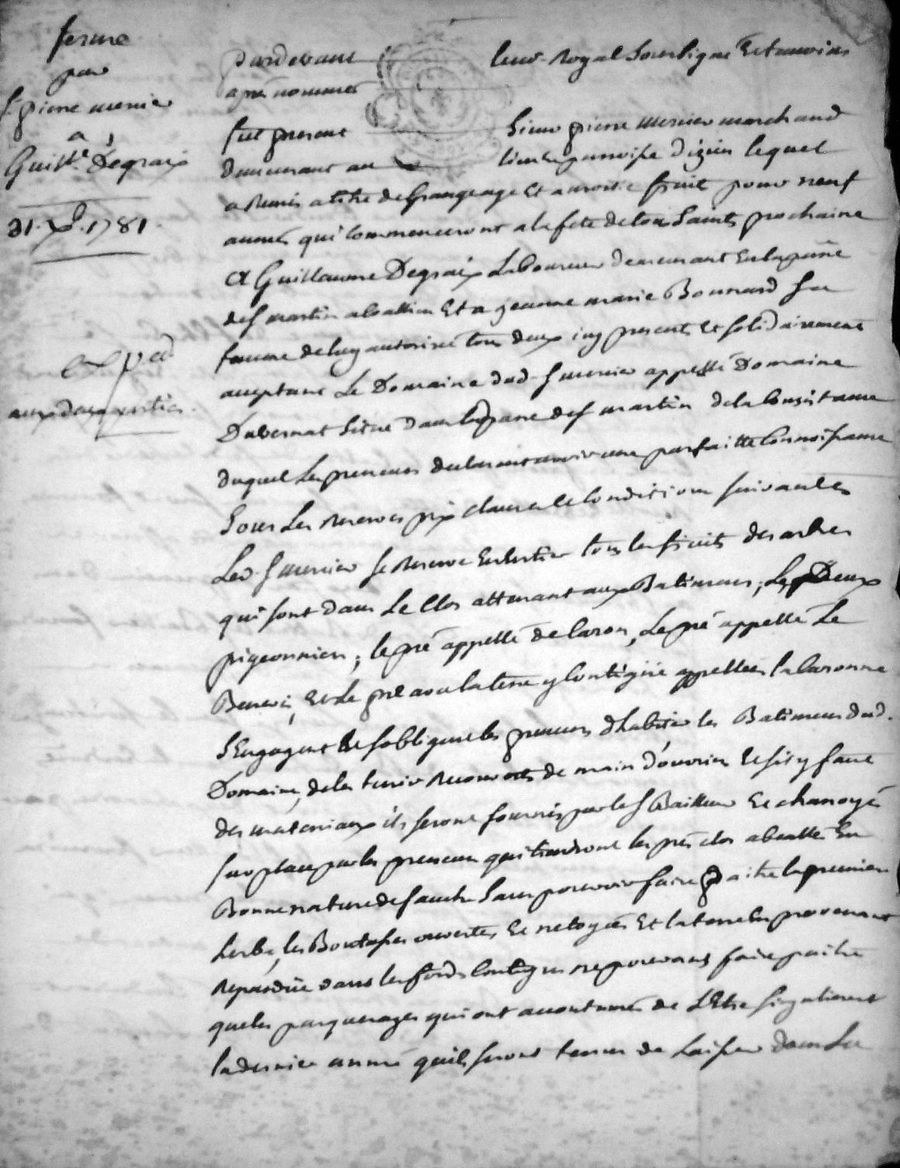 ferme
par
Sr pierre mercier
a
Guille Degraix
31 Xbre 1781
expéd
aux deux parties
pardevant le notaire Royal soussigné Et temoins
apres nommés
fut present Sieur pierre mercier marchand
demeurant au lieu Et paroisse d'izieu lequel
a Remis a titre de Grangeage Et a moitié fruit pour neuf
années qui commenceront a la fete de tous Saints prochaine
A Guillaume Degraix Laboureur demeurant En la psse
de St martin a Coallieu Et a jeanne marie Bonnard sa
femme de luy autorisée tous deux icy present Et solidairement
acceptant Le Domaine dud. Sr mercier appellé Domaine
Duvernat Situé dans la psse de St martin de la Consistance
duquel Les preneurs declarent avoir une parfaitte Connoissance
Sous Les Reserves prix clauses Et Conditions suivantes
Led. Sr mercier se Reserve En Entier tous les fruits des arbres
qui sont dans Le Clos attenant aux Batimens, Les Deux
pigeonniers, le pré appellé de laron, Le pré appellé Le
Et Le pré avec la terre y Contigue appellée la laronne
s'Engagent Et s'obligent les preneurs d'habiter les Batimens dud.
Domaine, de les tenir Recouverts de main d'ouvrier Et s'il y faut
des materiaux ils seront fournis par le Sr Bailleur Et charroyés
sur place par les preneurs qui tiendront les prés clos a En
Bonne nature de fauche sans pouvoir faire paitre la premiere
herbe, les Boutasses ouvertes Et netoyées Et la terre En provenant
Repandue dans les fonds Contigus ne pouvant faire paitre
que les paquerages qui ont accoutumés de L'Etre singulierement
la derniere année qu'ils seront tenus de Laisser dans Le